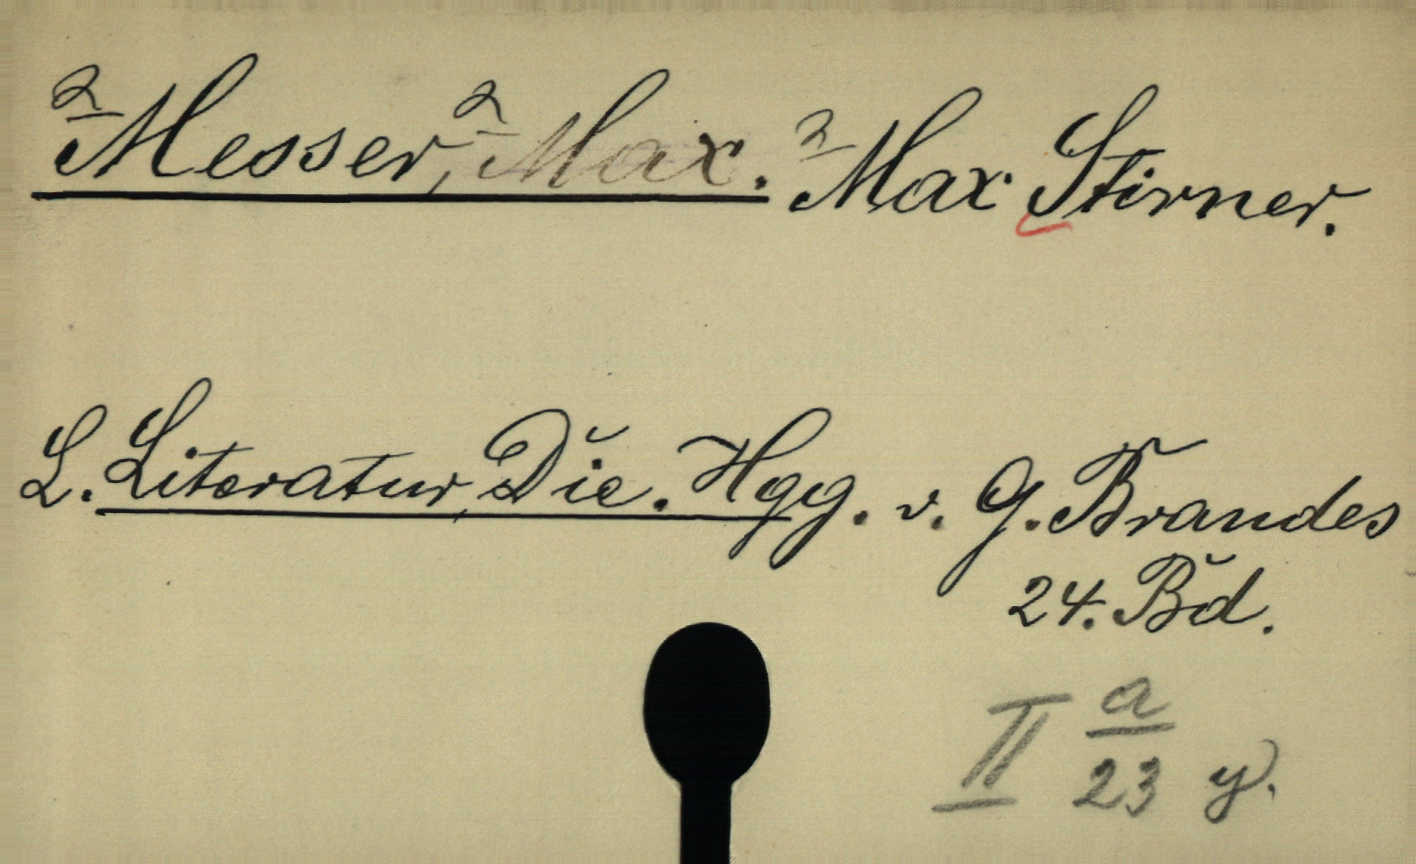 Messer, Max. Max Stirner.
L. Literatur, Die. Hgg. v. G. Brandes
24. Bd.
II a/23 y.